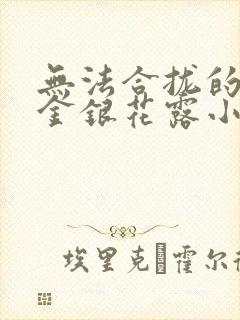 無法合拢的
金銀花露小
埃里克 霍尔